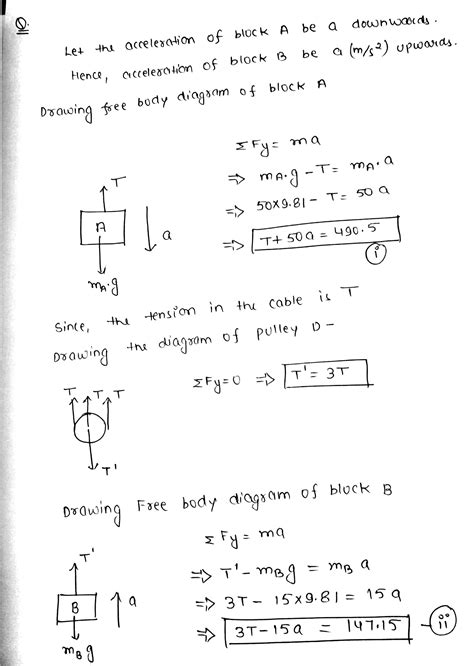 Q.
Let the acceleration of block A be a downwards.
Hence, acceleration of block B be a (m/s²) upwards.
Drawing free body diagram of block A
ΣFy = ma
⇒ mA.g - T = mA.a
⇒ 50×9.81 - T = 50a
⇒ T + 50a = 490.5
i
T
A
a
mA.g
Since, the tension in the cable is T
Drawing the diagram of pulley D -
T T T
ΣFy=0 ⇒ T' = 3T
T'
Drawing Free body diagram of block B
ΣFy = ma
⇒ T' - mBg = mB a
⇒ 3T - 15×9.81 = 15a
⇒ 3T - 15a = 147.15 - ii
T'
B
a
mB g